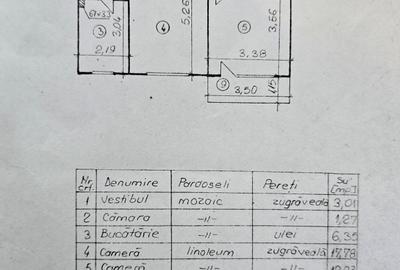 67x33
3
3,04
2,19
4
5,26
5
3,56
3,38
9
3,50
1,15
Nr. crt. Denumire Pardoseli Pereți Su [mp]
1 Vestibul mozaic zugrăveală 3,01
2 Cămara -//- -//- 1,27
3 Bucătărie -//- ulei 6,35
4 Cameră linoleum zugrăveală 17,78
5 Cameră -//- -//-